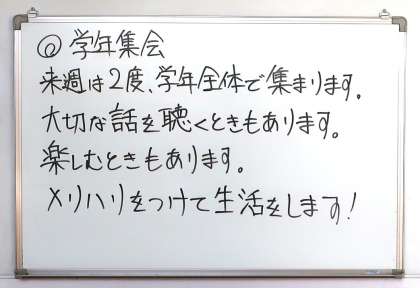 ◎学年集会
来週は2度、学年全体で集まります。
大切な話を聴くときもあります。
楽しむときもあります。
メリハリをつけて生活をします!